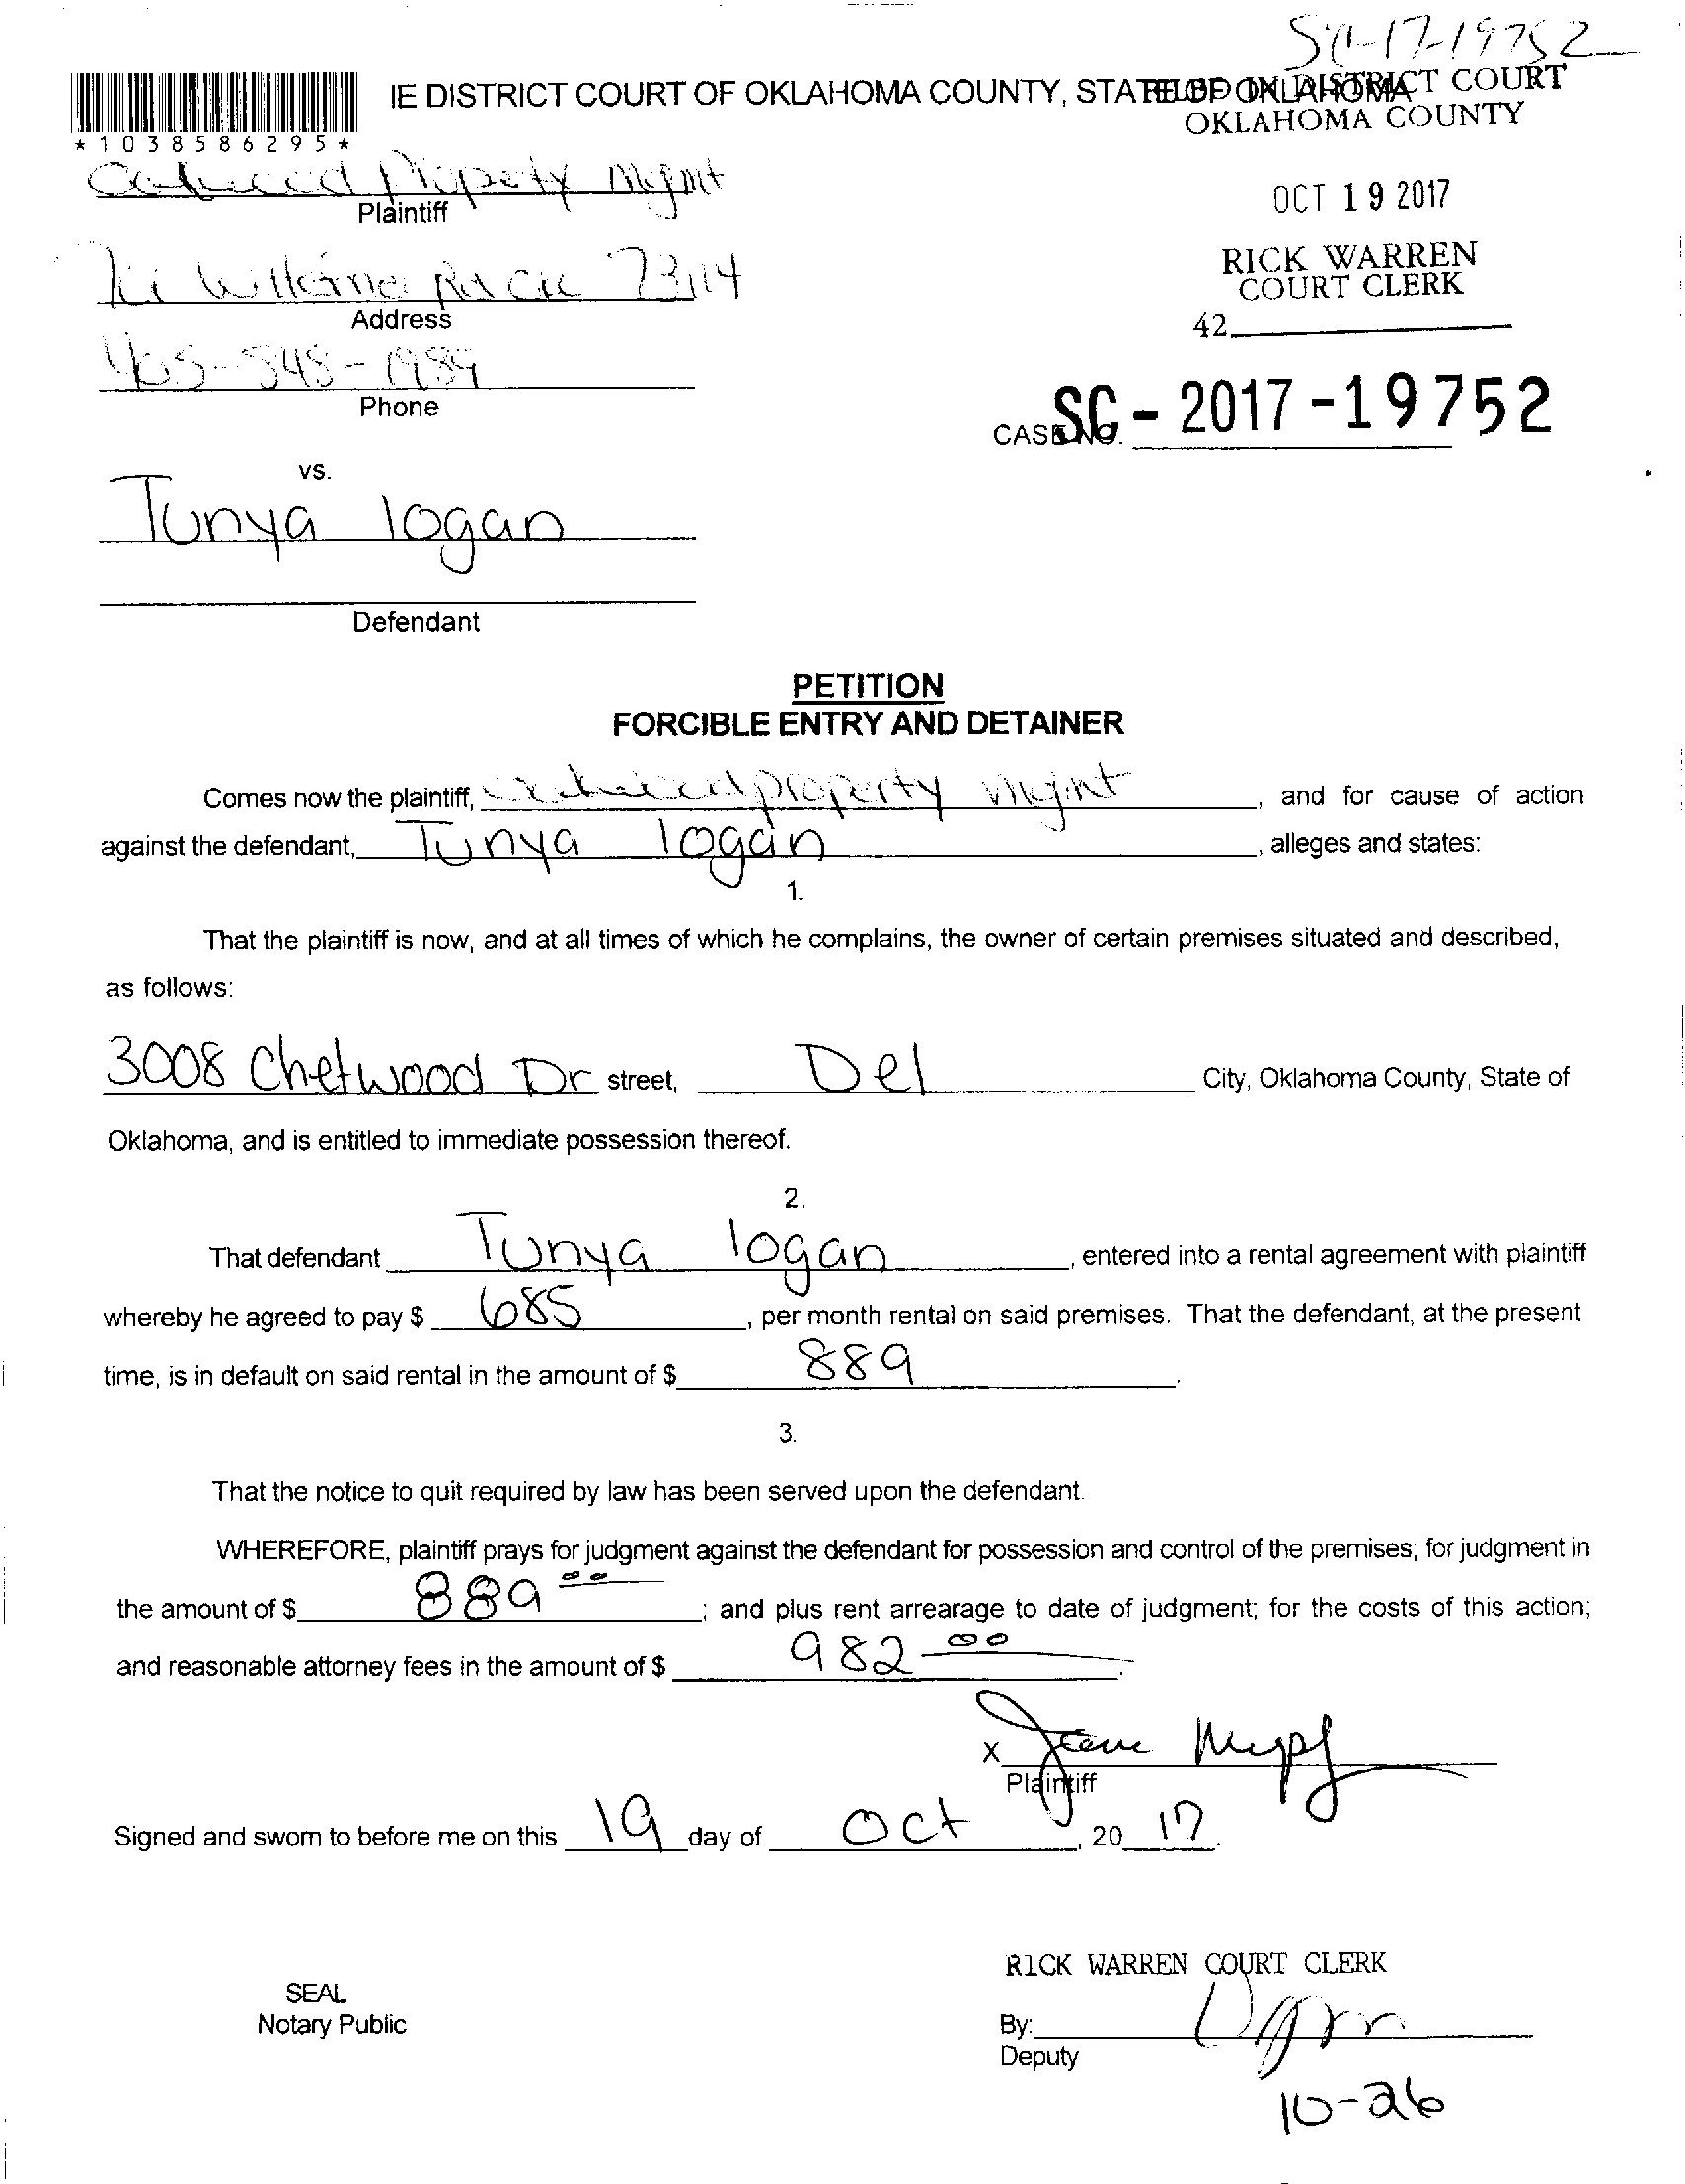 SC-17-19752
IE DISTRICT COURT OF OKLAHOMA COUNTY, STATE OF OKLAHOMA
FILED IN DISTRICT COURT
OKLAHOMA COUNTY
*1038586295*
Property Mgmt
Plaintiff
OCT 19 2017
RICK WARREN
COURT CLERK
42
73114
Address
405-848-1984
Phone
CASE NO. SC-2017-19752
vs.
Tunya logan
Defendant
PETITION
FORCIBLE ENTRY AND DETAINER
Comes now the plaintiff, property mgmt, and for cause of action
against the defendant, Tunya logan, alleges and states:
1.
That the plaintiff is now, and at all times of which he complains, the owner of certain premises situated and described,
as follows:
3008 Chetwood Dr street, Del City, Oklahoma County, State of
Oklahoma, and is entitled to immediate possession thereof.
2.
That defendant Tunya logan, entered into a rental agreement with plaintiff
whereby he agreed to pay $ 685, per month rental on said premises. That the defendant, at the present
time, is in default on said rental in the amount of $ 889.
3.
That the notice to quit required by law has been served upon the defendant.
WHEREFORE, plaintiff prays for judgment against the defendant for possession and control of the premises; for judgment in
the amount of $ 889 00; and plus rent arrearage to date of judgment; for the costs of this action;
and reasonable attorney fees in the amount of $ 982 00.
X
Plaintiff
Signed and sworn to before me on this 19 day of Oct, 20 17.
RICK WARREN COURT CLERK
SEAL
Notary Public
By:
Deputy
10-26